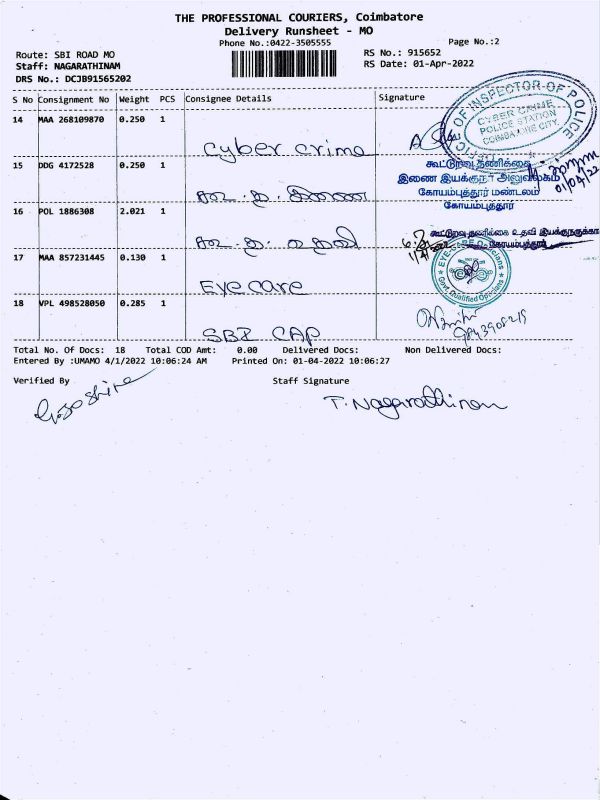 THE PROFESSIONAL COURIERS, Coimbatore
Delivery Runsheet - MO
Phone No.:0422-3505555
Page No.:2
Route: SBI ROAD MO
RS No.: 915652
Staff: NAGARATHINAM
RS Date: 01-Apr-2022
DRS No.: DCJB91565202
S No Consignment No Weight PCS Consignee Details Signature
14 MAA 268109870 0.250 1
Cyber crime
OF INSPECTOR OF POLICE
CYBER CRIME
POLICE STATION
COIMBATORE CITY.
15 DDG 4172528 0.250 1
கூ.த.இணை
கூட்டுறவு தணிக்கை
இணை இயக்குநர் அலுவலகம்
கோயம்புத்தூர் மண்டலம்
கோயம்புத்தூர்
01/04/22
16 POL 1886308 2.021 1
கூ.த.உதவி
கூட்டுறவு தணிக்கை உதவி இயக்குநருக்காக
கோயம்புத்தூர்
17 MAA 857231445 0.130 1
Eye care
EYE-CARE Opticians
Govt. Qualified Opticians
18 VPL 498528050 0.285 1
SBI CAP
Total No. Of Docs: 18 Total COD Amt: 0.00 Delivered Docs: Non Delivered Docs:
Entered By :UMAMO 4/1/2022 10:06:24 AM Printed On: 01-04-2022 10:06:27
Verified By Staff Signature
T. Nagarathinam